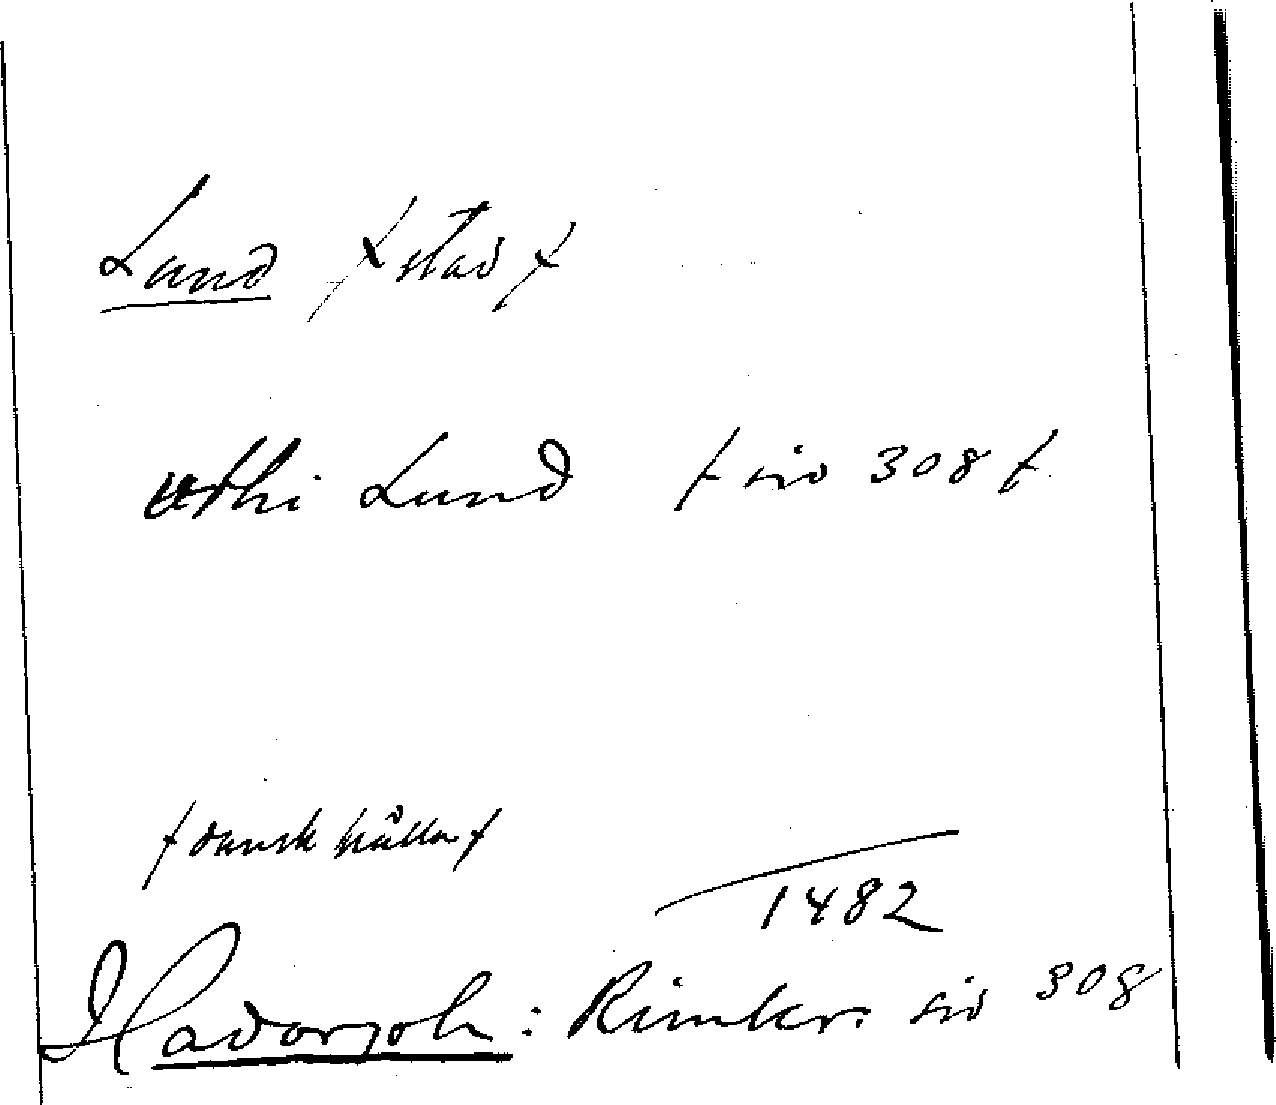 Lund / stad /
uthi Lund / sid 308 /
/ dansk källa /
1482
Hadorph: Rimkr. sid 308